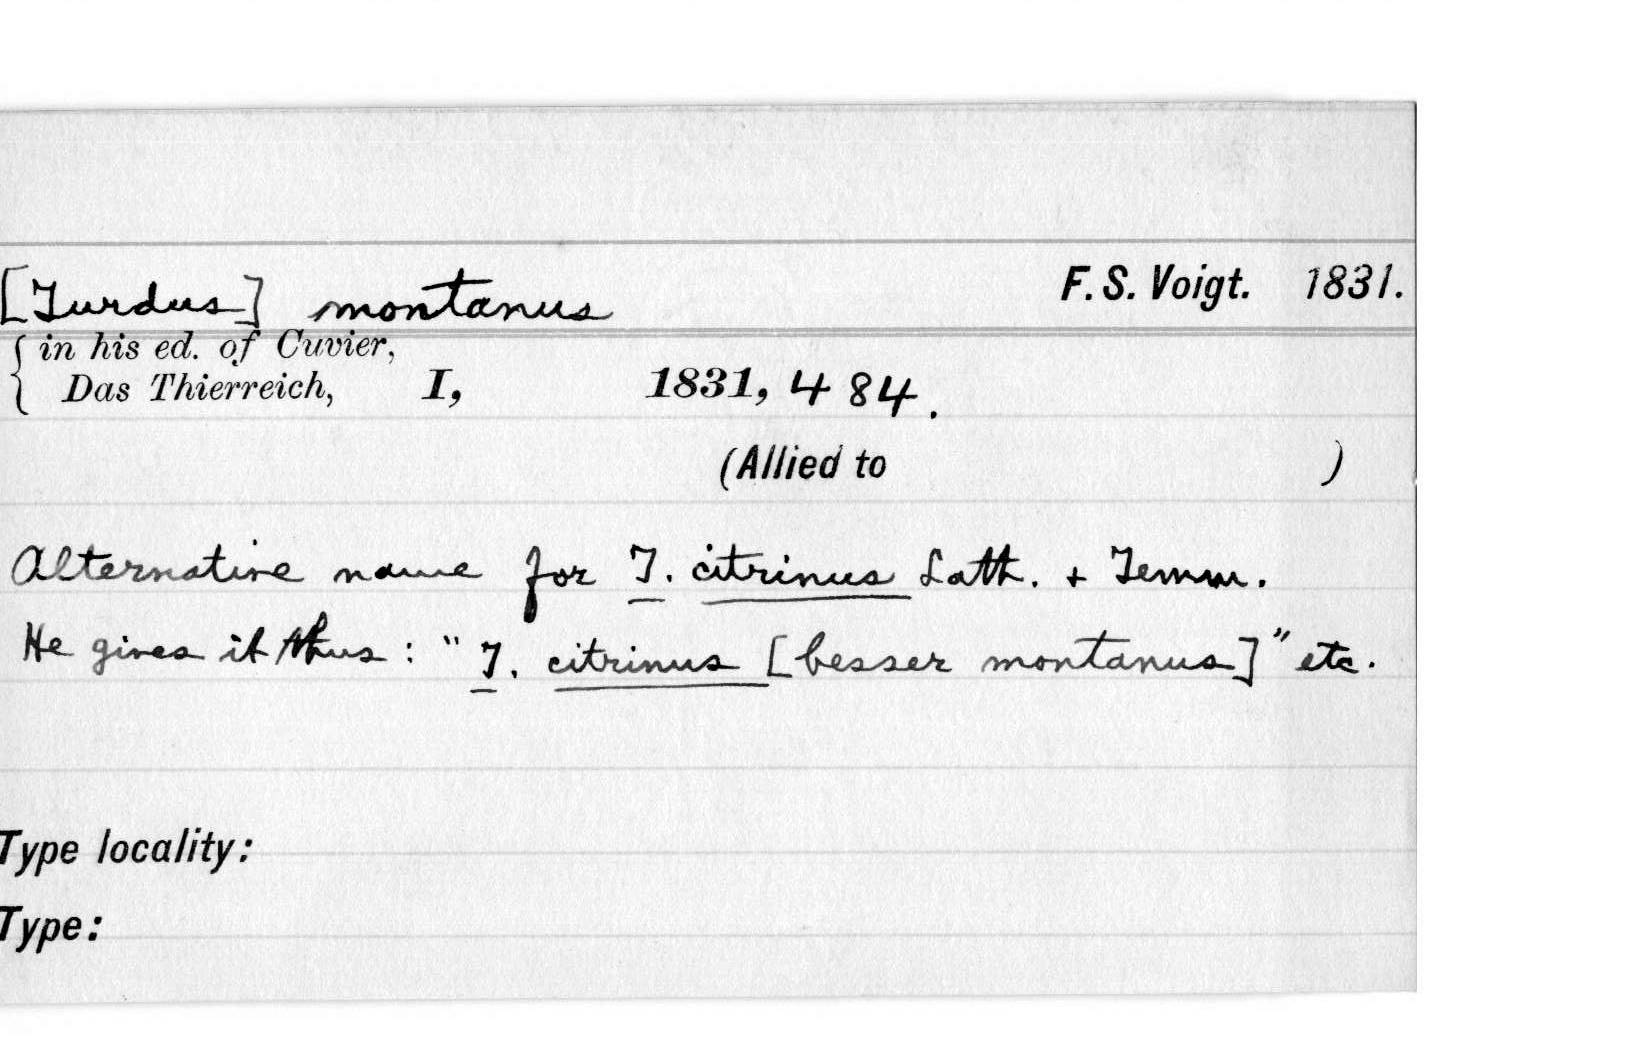 [Turdus] montanus F. S. Voigt. 1831.
in his ed. of Cuvier,
Das Thierreich, I, 1831, 484.
(Allied to )
Alternative name for T. citrinus Lath. + Temm.
He gives it thus: "T. citrinus [besser montanus]" etc.
Type locality:
Type: